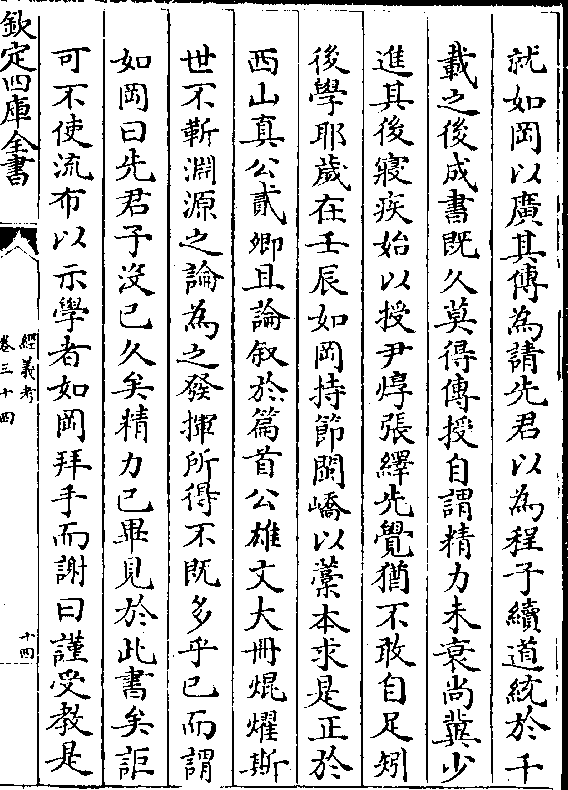 就如岡以廣其傳為請先君以為程子續道統於千
載之後成書既久莫得傳授自謂精力未衰尚冀少
進其後寢疾始以授尹焞張繹先覺猶不敢自足矧
後學耶歲在壬辰如岡持節閩嶠以藁本求是正於
西山真公貳卿且論叙於篇首公雄文大冊焜燿斯
世不靳淵源之論為之發揮所得不既多乎已而謂
如岡曰先君子沒已久矣精力已畢見於此書矣詎
可不使流布以示學者如岡拜手而謝曰謹受教是
欽定四庫全書
經義考
卷三十四
十四